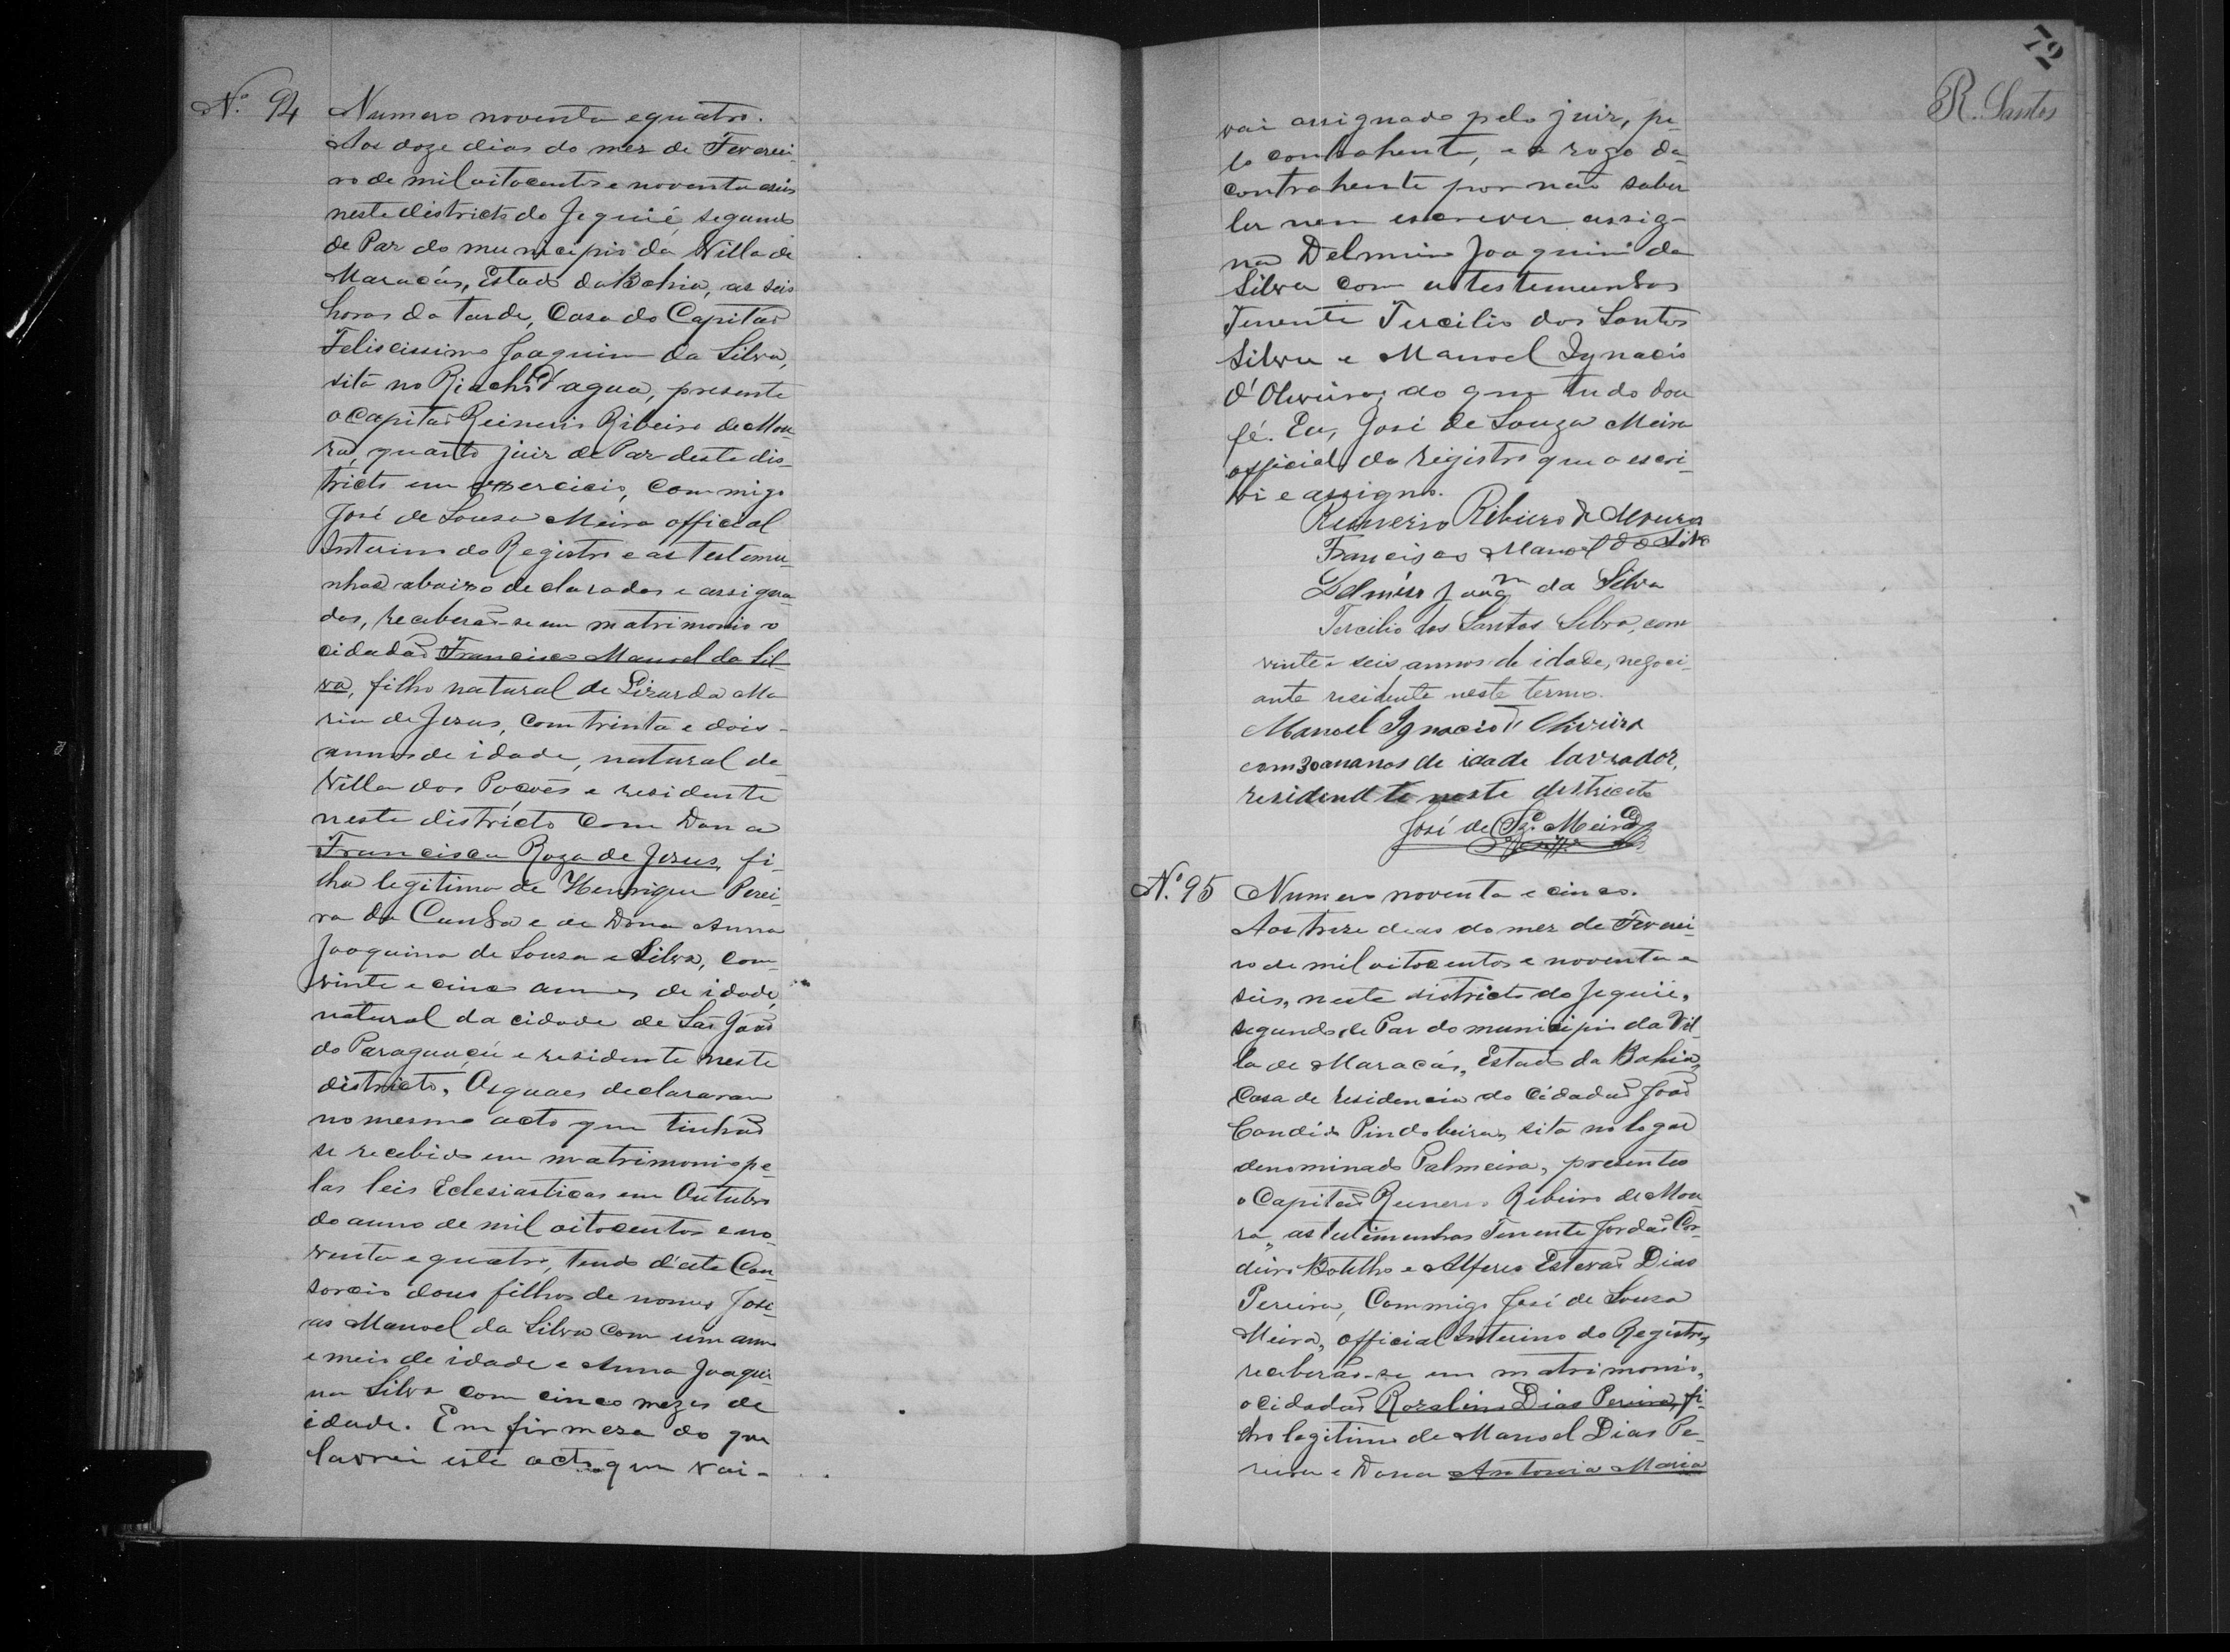 Nº 94
Numero noventa e quatro.
Aos doze dias do mez de Feverei-
ro de mil oitocentos e noventa e seis
neste districto do Jequié, segundo
de Paz do municipio da Villa de
Maracás, Estado da Bahia, as seis
horas da tarde, Casa do Capitão
Feliscissimo Joaquim da Silva,
sita no Riacho d'agua, presente
o Capitão Reinerio Ribeiro de Mou-
ra, quarto juiz de Paz deste dis-
tricto em exercicio, Commigo
José de Souza Meira official
Interino do Registro e as testemu-
nhas abaixo declaradas e assigna-
das, receberão-se em matrimonio o
cidadão Francisco Manoel da Sil-
va, filho natural de Lizarda Ma-
ria de Jesus, com trinta e dois-
annos de idade, natural da
Villa dos Poções e residente
neste districto Com Dona
Francisca Roza de Jesus, fi-
lha legitima de Henrique Perei-
ra da Cunha e de Dona Anna
Joaquina de Souza e Silva, com
vinte e cinco annos de idade,
natural da cidade de São João
do Paraguaçú e residente neste
districto, Os quaes declararam
no mesmo acto que tinhão
se recebido em matrimonio pe-
las leis Eclesiasticas em Outubro
do anno de mil oitocentos e no-
venta e quatro, tendo d'este Con-
sorcio dous filhos de nomes José
as Manoel da Silva com um anno
e meio de idade e Anna Joaqui-
na Silva com cinco mezes de
idade. Em firmeza do que
lavrei este acto que vai-
72
R. Santos
vai assignado pelo juiz, pe-
lo contrahente, e a rogo da
contrahente por não saber
ler nem escrever assig-
na Delmiro Joaquim da
Silva com as testemunhas
Tenente Tercilio dos Santos
Silva e Manoel Ignacio
d'Oliveira, do que tudo dou
fé. Eu, José de Souza Meira
official do registro que o escri-
vi e assigno.
Reinerio Ribeiro de Moura
Francisco Manoel da Silva
Delmiro Joaqm da Silva
Tercilio dos Santos Silva, com
vinte e seis annos de idade, negoci-
ante residente neste termo.
Manoel Ignacio d'Oliveira
com 30 ananos de idade lavrador,
residend te neste destricto
José de Sza Meira
Nº 95
Numero noventa e cinco.
Aos treze dias do mez de Feverei-
ro de mil oitocentos e noventa e
seis, neste districto do Jequié,
segundo de Paz do municipio da Vil-
la de Maracás, Estado da Bahia,
Casa de residencia do Cidadão João
Candido Pindobeira, sita no logar
denominado Palmeira, presentes
o Capitão Reinerio Ribeiro de Mou-
ra, as testemunhas Tenente Jordão Cor-
deiro Botelho e Alferes Estevão Dias
Pereira, Commigo José de Souza
Meira, official Interino do Registro,
receberão-se em matrimonio,
o cidadão Rozalino Dias Pereira, fi-
lho legitimo de Manoel Dias Pe-
reira e Dona Antonia Maria